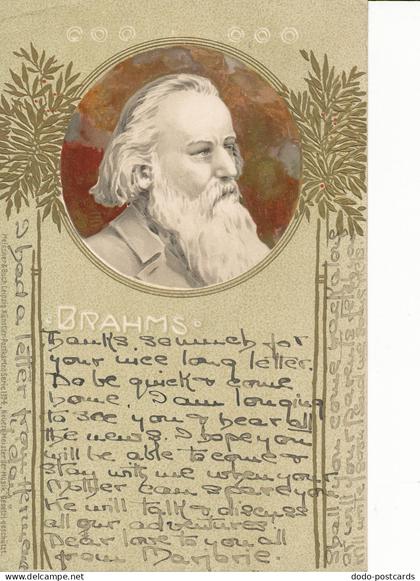 BRAHMS
Thanks so much for
your nice long letter.
Do be quick & come
home. I am longing
to see you & hear all
the news. I hope you
will be able to come &
stay with me when your
Mother can spare you.
We will talk & discuss
all our adventures
Dear love to you all
from Marjorie.
I had a letter from
Meissner & Buch, Leipzig Künstler-Postkarten Serie
Shall you come back along
will your
© www.delcampe.net
dodo-postcards